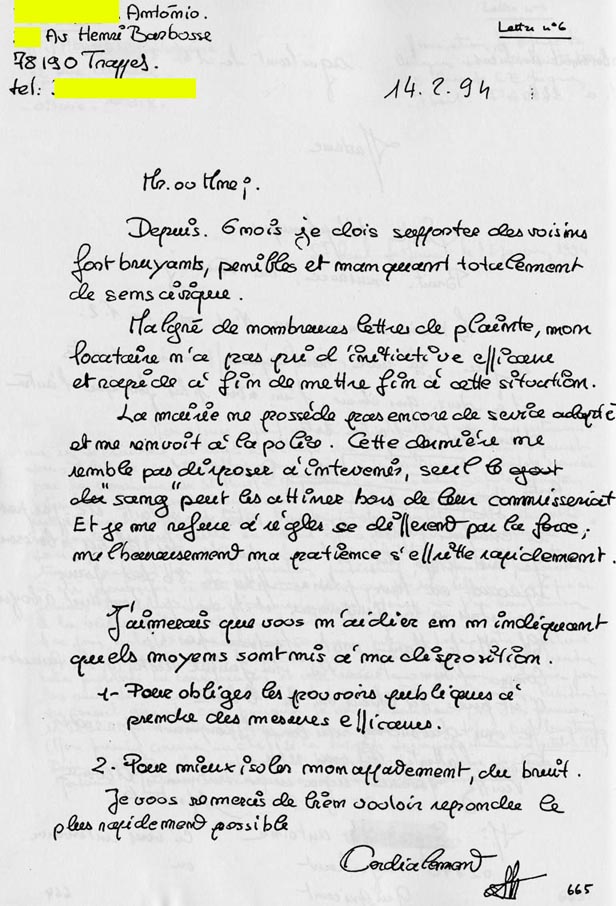 António.
Lettre n°6
Av Henri Barbosse
78190 Trappes.
tel:
14.2.94
Mr. ou Mme;
Depuis. 6 mois je dois supporter des voisins
fort bruyants, penibles et manquant totalement
de sens civique.
Malgré de nombreuses lettres de plainte, mon
locataire n'a pas prid d'initiative efficace
et rapide à fin de mettre fin à cette situation.
La mairie ne posséde pas encore de service adapté
et me renvoit à la police. Cette dernière ne
semble pas disposer à intevenir, seul le gout
du "sang" peut les attirer hors de leur commisseriat
Et je me refuse à régler se différent par la force;
malheureusement ma patience s'effritte rapidement.
J'aimerais que vous m'aidier en m indiquant
quels moyens sont mis à ma disposition.
1- Pour obliger les pouvoirs publiques à
prendre des mesures efficaces.
2. Pour mieux isoler mon appartement, du bruit.
Je vous remercis de bien vouloir repondre le
plus rapidement possible
Cordialement
665